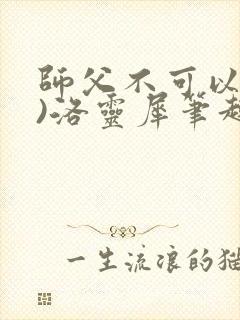 師父不可以
)洛靈犀筆趣
一生流浪的貓